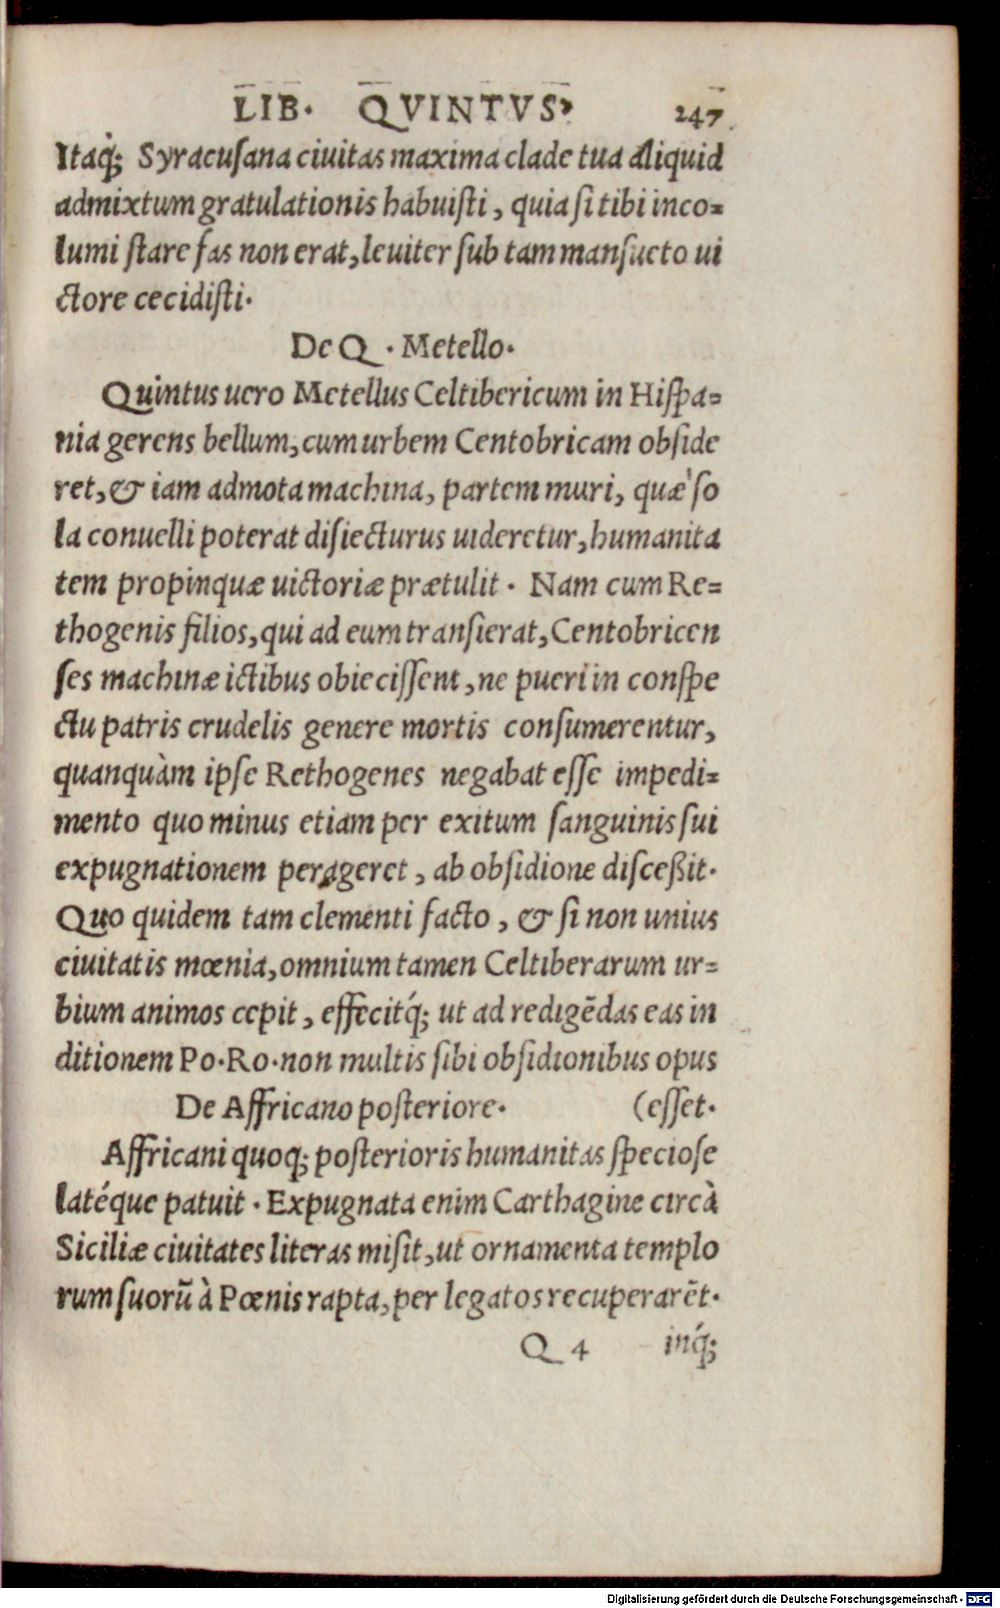 LIB. QVINTVS. 247
Itaq́; Syracusana ciuitas maxima clade tua aliquid
admixtum gratulationis habuisti, quia si tibi inco=
lumi stare fas non erat, leuiter sub tam mansueto ui
ctore cecidisti.
De Q. Metello.
Quintus uero Metellus Celtibericum in Hispa=
nia gerens bellum, cum urbem Centobricam obside
ret, & iam admota machina, partem muri, quæ so
la conuelli poterat disiecturus uideretur, humanita
tem propinquæ uictoriæ prætulit. Nam cum Re=
thogenis filios, qui ad eum transierat, Centobricen
ses machinæ ictibus obiecissent, ne pueri in conspe
ctu patris crudelis genere mortis consumerentur,
quanquàm ipse Rethogenes negabat esse impedi=
mento quo minus etiam per exitum sanguinis sui
expugnationem perageret, ab obsidione disceßit.
Quo quidem tam clementi facto, & si non unius
ciuitatis mœnia, omnium tamen Celtiberarum ur=
bium animos cepit, effecitq́; ut ad redigēdas eas in
ditionem Po. Ro. non multis sibi obsidionibus opus
De Affricano posteriore. (esset.
Affricani quoq; posterioris humanitas speciose
latéque patuit. Expugnata enim Carthagine circà
Siciliæ ciuitates literas misit, ut ornamenta templo
rum suorū à Pœnis rapta, per legatos recuperarēt.
Q 4 inq́;
Digitalisierung gefördert durch die Deutsche Forschungsgemeinschaft - DFG